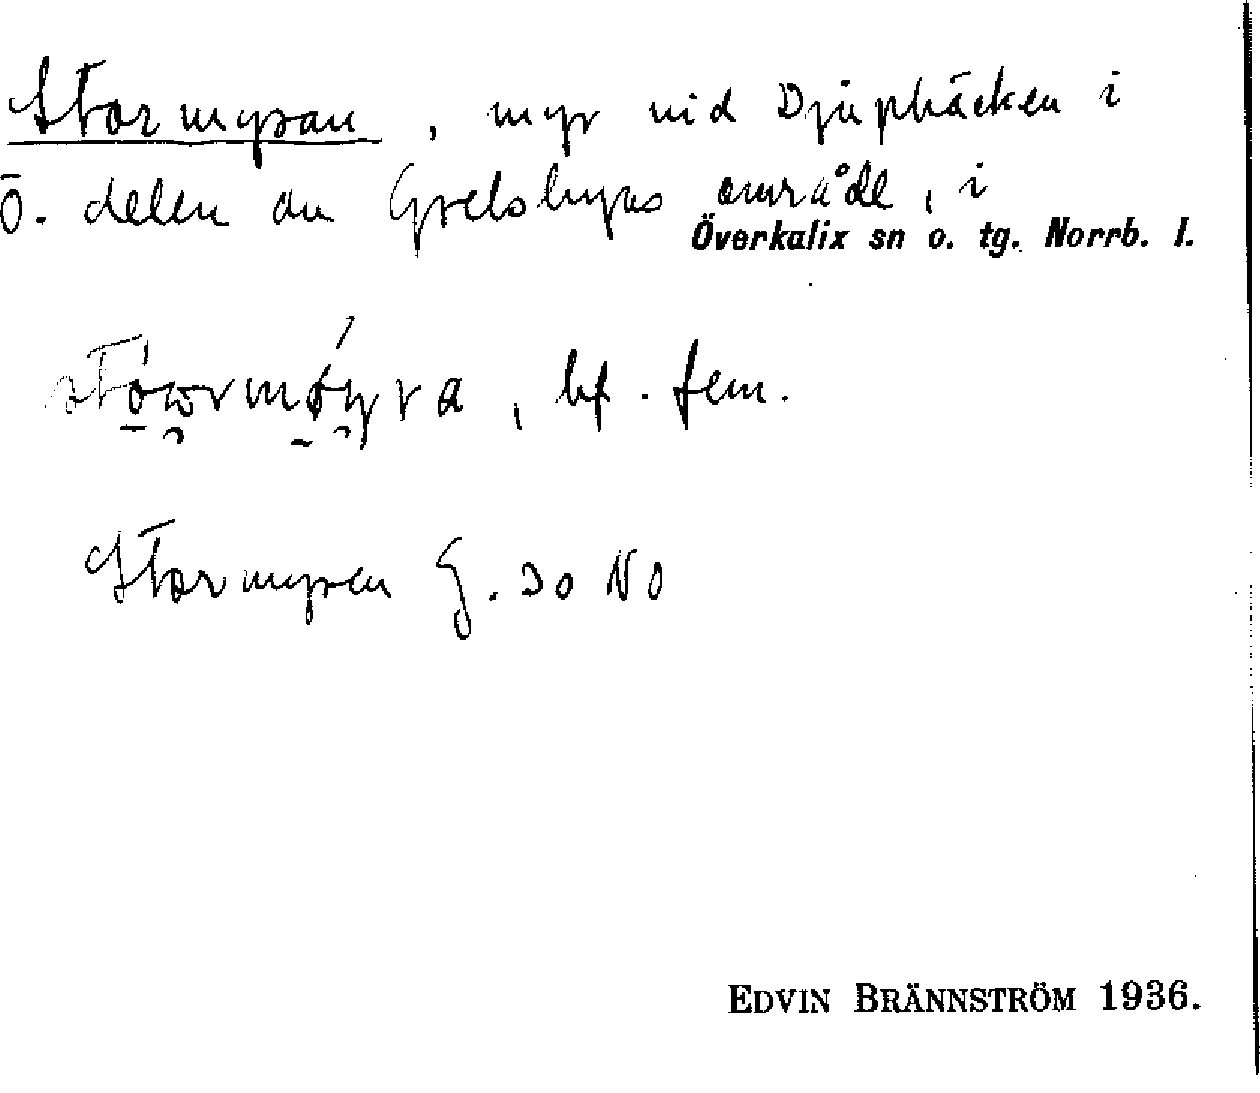 Stormyran, myr vid Djupbäcken i
Ö. delen av Grelsbyns område, i
Överkalix sn o. tg. Norrb. l.
bf. fem.
Stormyren G. 30 NO
EDVIN BRÄNNSTRÖM 1936.